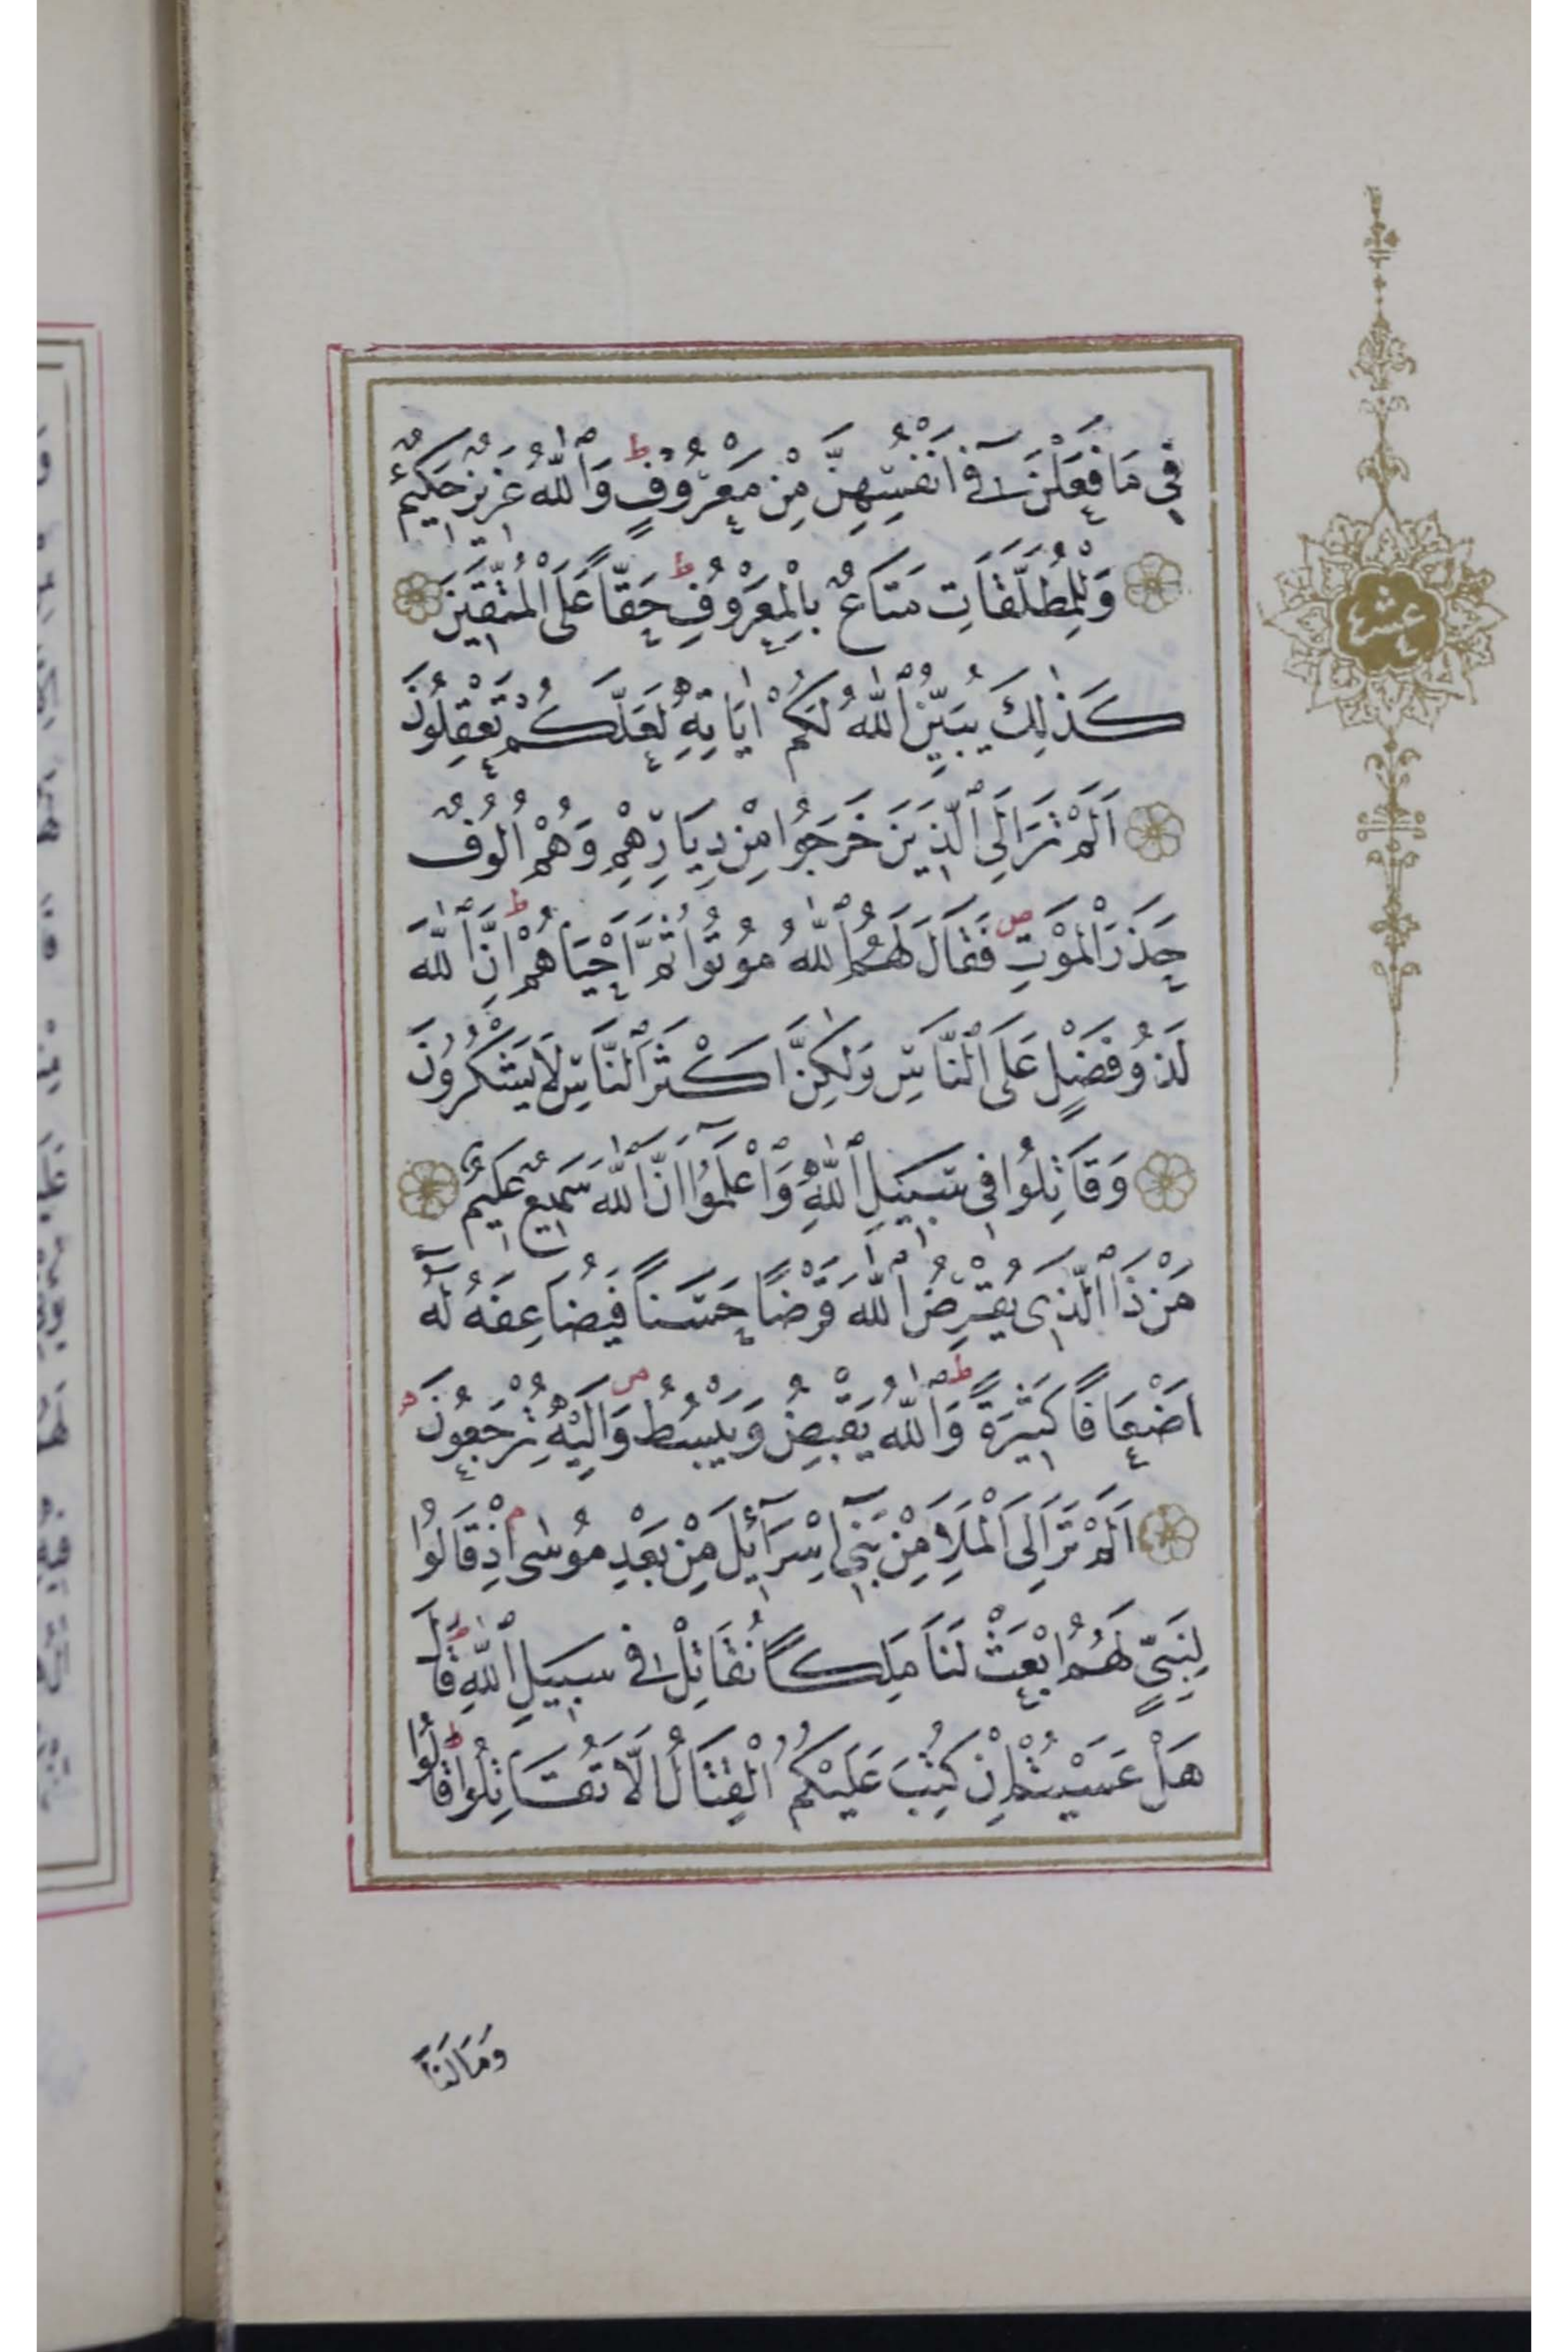 فِي مَا فَعَلْنَ فِٓي اَنْفُسِهِنَّ مِنْ مَعْرُوفٍ ط وَٱللّٰهُ عَزِيزٌ حَكِيمٌ
وَلِلْمُطَلَّقَاتِ مَتَاعٌ بِالْمَعْرُوفِ ط حَقّاً عَلَى الْمُتَّقِينَ
كَذٰلِكَ يُبَيِّنُ ٱللّٰهُ لَكُمْ اٰيَاتِهِ لَعَلَّكُمْ تَعْقِلُونَ
اَلَمْ تَرَ اِلَى ٱلَّذِينَ خَرَجُوا مِنْ دِيَارِهِمْ وَهُمْ اُلُوفٌ
حَذَرَ الْمَوْتِ ص فَقَالَ لَهُمُ ٱللّٰهُ مُوتُوا ثُمَّ اَحْيَاهُمْ ط اِنَّ ٱللّٰهَ
لَذُو فَضْلٍ عَلَى ٱلنَّاسِ وَلٰكِنَّ اَكْثَرَ ٱلنَّاسِ لَا يَشْكُرُونَ
وَقَاتِلُوا فِي سَبِيلِ ٱللّٰهِ وَٱعْلَمُٓوا اَنَّ ٱللّٰهَ سَمِيعٌ عَلِيمٌ
مَنْ ذَا ٱلَّذِي يُقْرِضُ ٱللّٰهَ قَرْضًا حَسَنًا فَيُضَاعِفَهُ لَهُٓ
اَضْعَافًا كَثِيرَةً ط وَٱللّٰهُ يَقْبِضُ وَيَبْسُطُ ص وَاِلَيْهِ تُرْجَعُونَ
اَلَمْ تَرَ اِلَى الْمَلَاِ مِنْ بَنِٓي اِسْرَٓائِلَ مِنْ بَعْدِ مُوسٰى م اِذْ قَالُوا
لِنَبِيٍّ لَهُمُ ابْعَثْ لَنَا مَلِكًا نُقَاتِلْ فِي سَبِيلِ ٱللّٰهِ ط قَالَ
هَلْ عَسَيْتُمْ اِنْ كُتِبَ عَلَيْكُمُ الْقِتَالُ اَلَّا تُقَاتِلُوا ط قَالُوا
وَمَا لَنَٓا
عشر